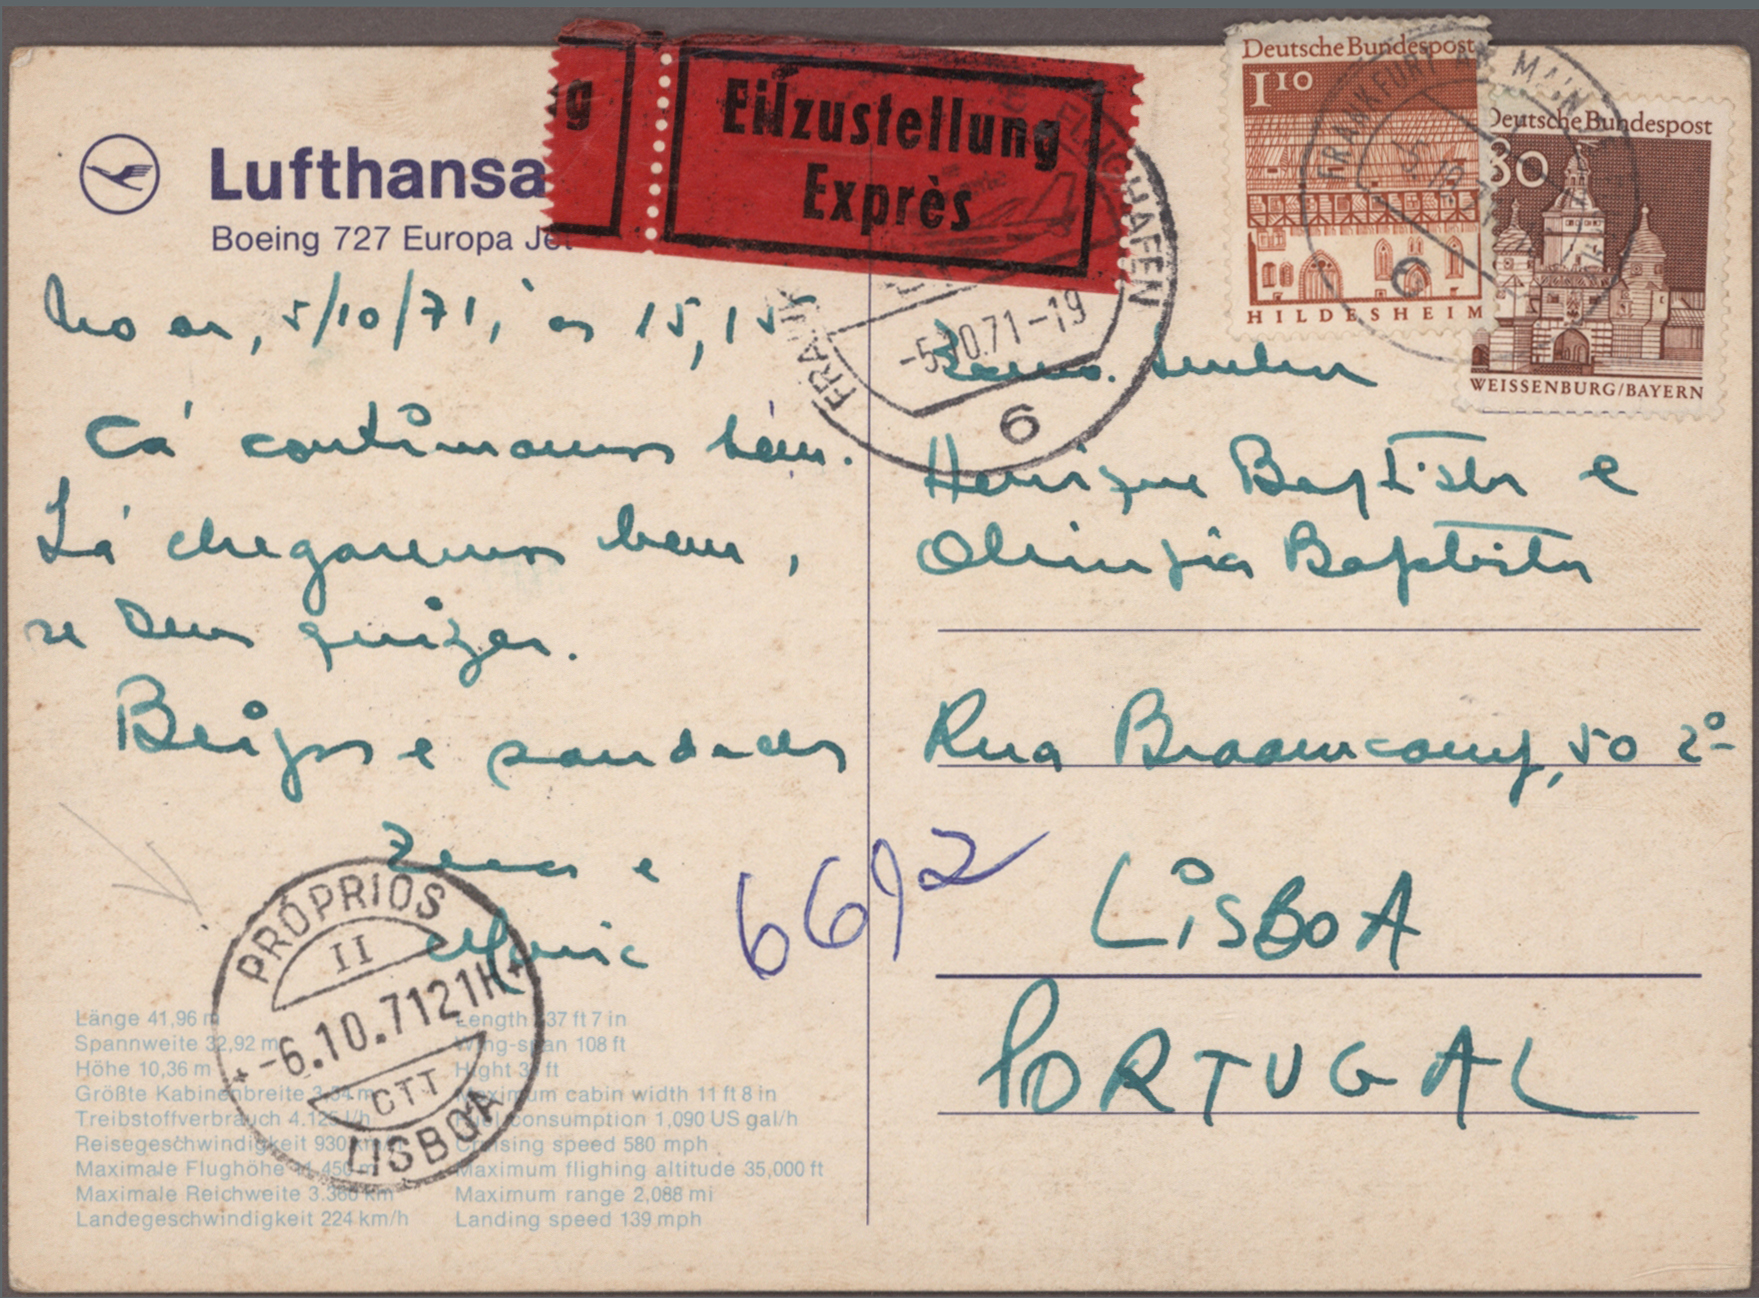 Lufthansa
Boeing 727 Europa Jet
g
Eilzustellung
Exprès
Deutsche Bundespost
110
HILDESHEIM
Deutsche Bundespost
80
WEISSENBURG/BAYERN
FRANKFURT AM MAIN
FLUGHAFEN
-5.10.71-19
6
No ar, 5/10/71, às 15,15
Cá continuamos bem.
Lá chegaremos bem,
se Deus quizer.
Beijos e saudades
Zeca e
Henrique Baptista e
Olimpia Baptista
Rua Braamcamp, 50 2º
LISBOA
PORTUGAL
6692
PRÓPRIOS
II
-6.10.7121H
CTT
LISBOA
Länge 41,96 m
Spannweite 32,92 m
Höhe 10,36 m
Größte Kabinenbreite 3,54 m
Treibstoffverbrauch 4.125 l/h
Reisegeschwindigkeit 930 km/h
Maximale Flughöhe 450 m
Maximale Reichweite 3.360 km
Landegeschwindigkeit 224 km/h
Length 137 ft 7 in
Wing-span 108 ft
Hight 3 ft
Maximum cabin width 11 ft 8 in
Fuel consumption 1,090 US gal/h
Cruising speed 580 mph
Maximum flighing altitude 35,000 ft
Maximum range 2,088 mi
Landing speed 139 mph